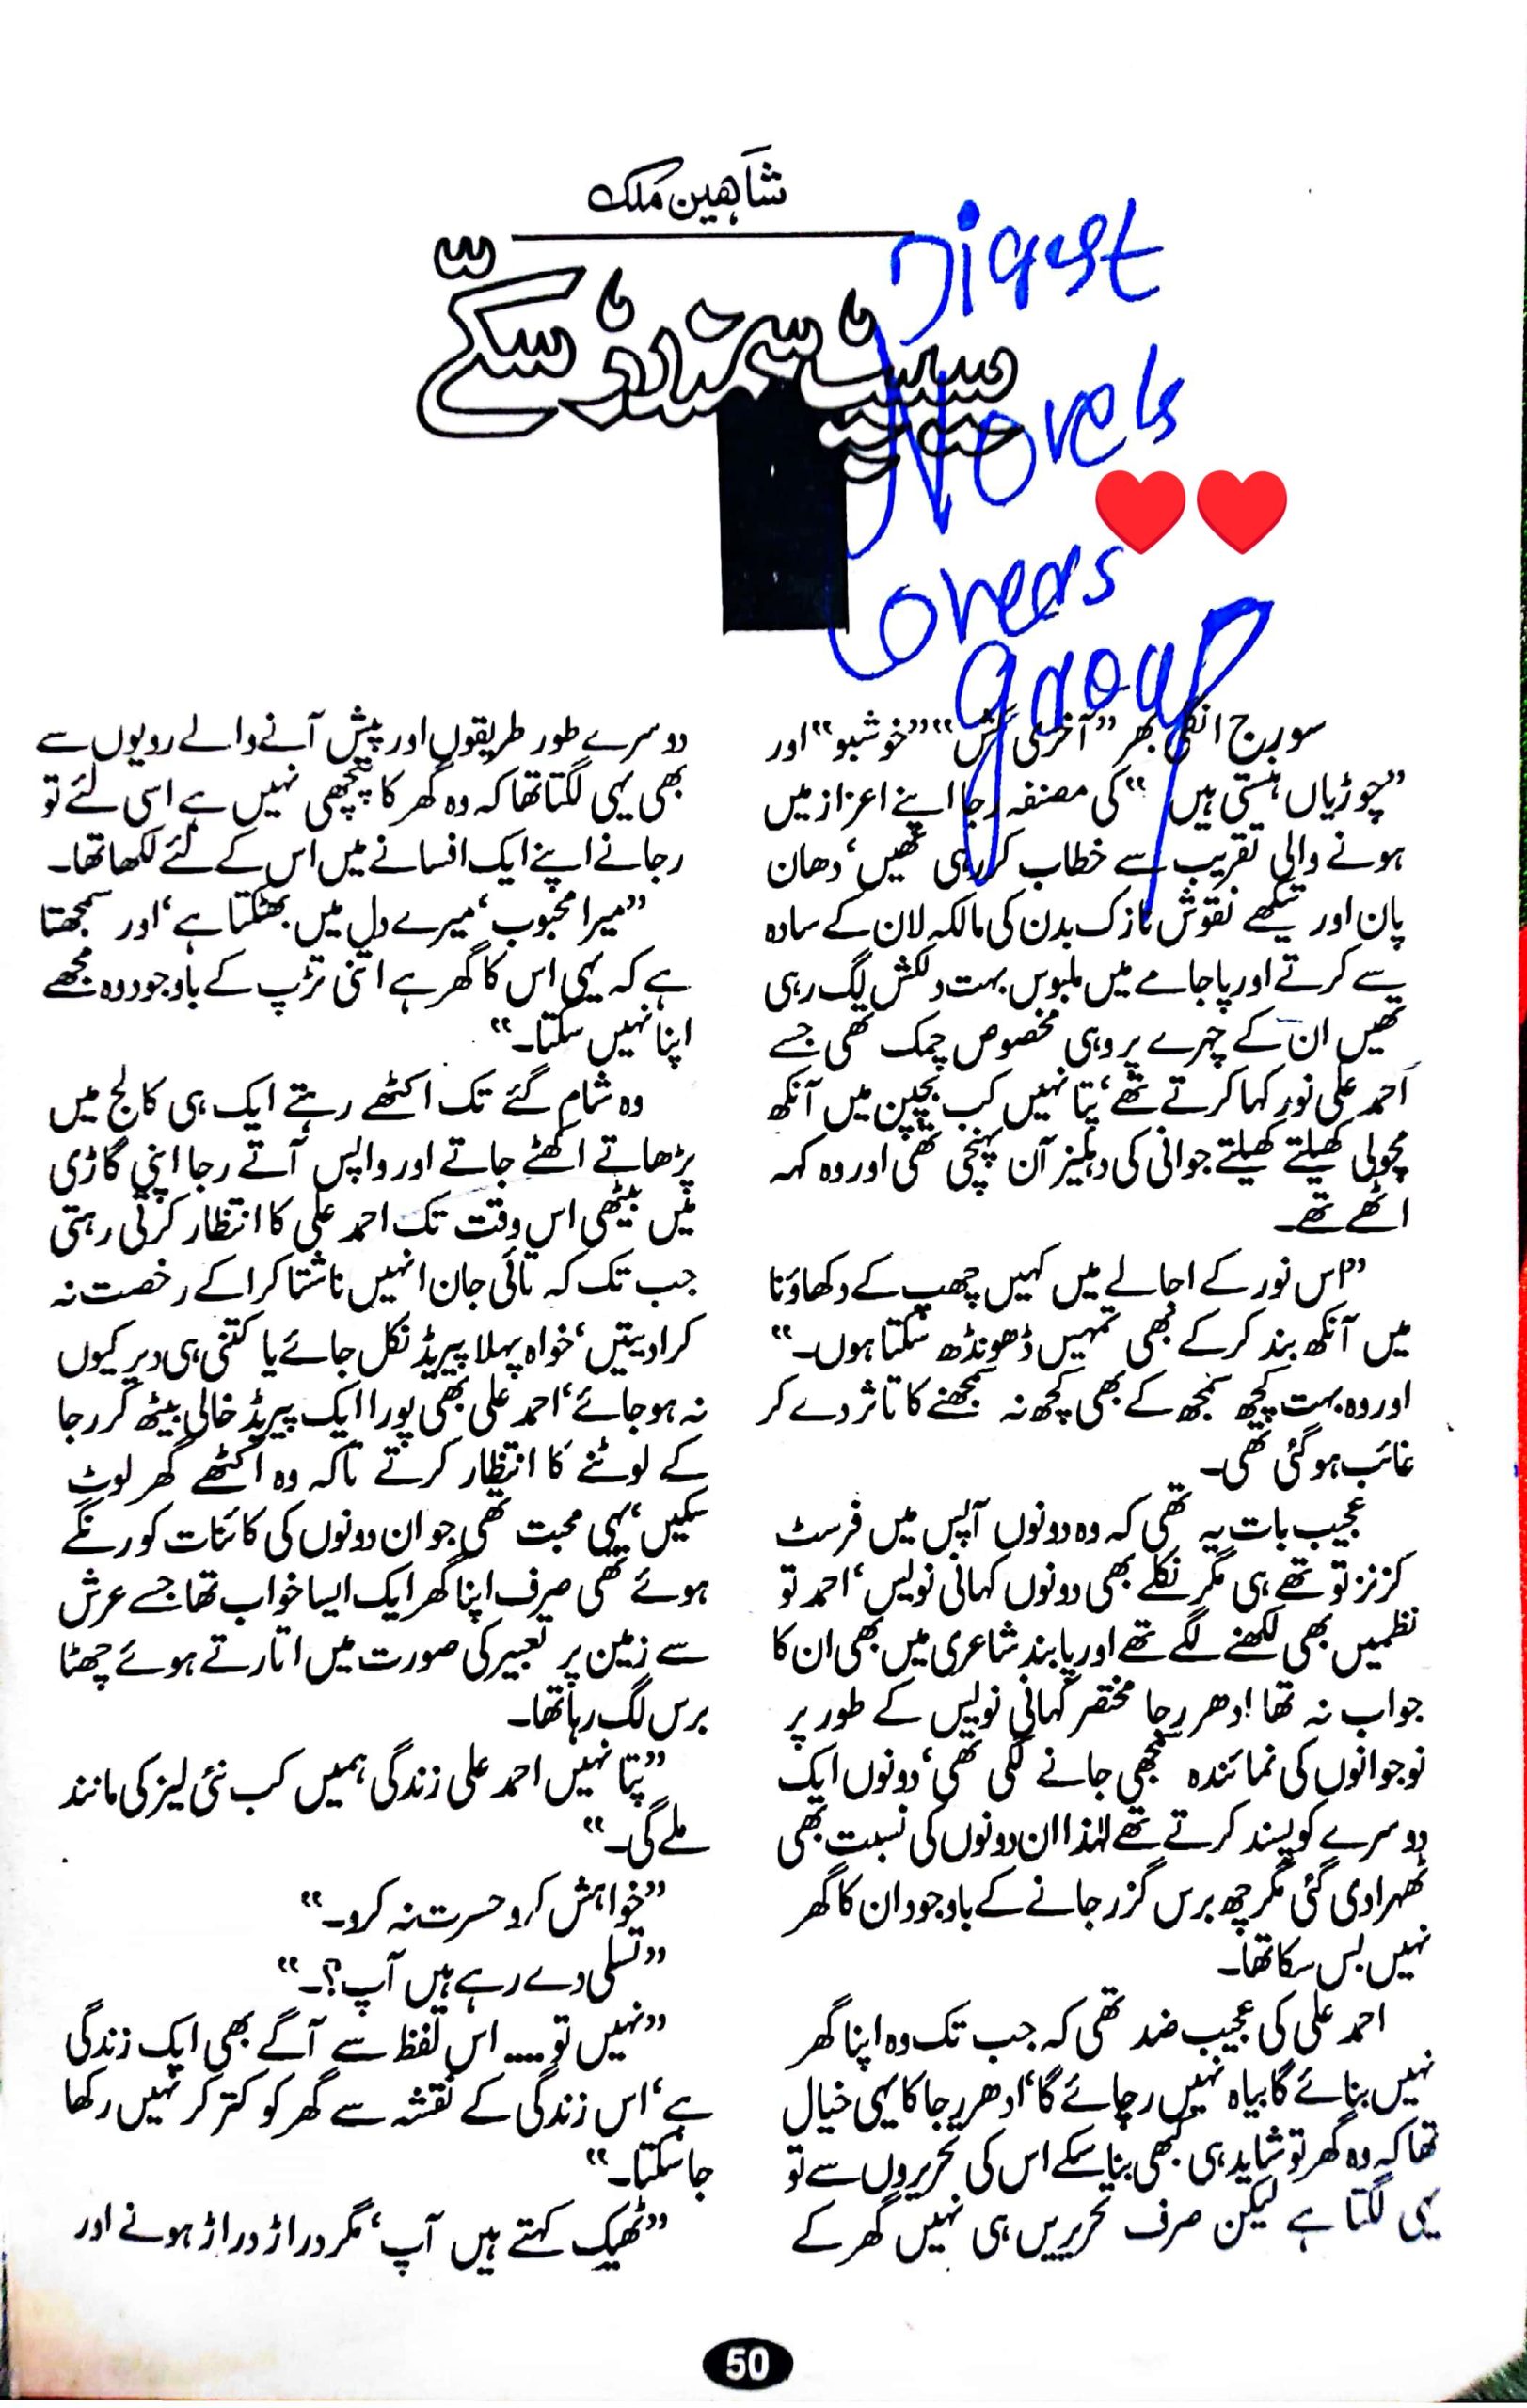 شاہین ملک
سیپ سمندروں کے
Digest
Novels
Lovers
group
سورج انگلی بھر ”آخری کش“ ”خوشبو“ اور
”چوڑیاں ہنستی ہیں“ کی مصنفہ رجا اپنے اعزاز میں
ہونے والی تقریب سے خطاب کر رہی تھیں‘ دھان
پان اور تیکھے نقوش نازک بدن کی مالکہ لان کے سادہ
سے کرتے اور پاجامے میں ملبوس بہت دلکش لگ رہی
تھیں ان کے چہرے پر وہی مخصوص چمک تھی جسے
احمد علی نور کہا کرتے تھے‘ پتا نہیں کب بچپن میں آنکھ
مچولی کھیلتے کھیلتے جوانی کی دہلیز آن پہنچی تھی اور وہ کہہ
اٹھے تھے۔
”اس نور کے اجالے میں کہیں چھپ کے دکھاؤ نا
میں آنکھ بند کر کے بھی تمہیں ڈھونڈھ سکتا ہوں۔“
اور وہ بہت کچھ سمجھ کے بھی کچھ نہ سمجھنے کا تاثر دے کر
غائب ہو گئی تھی۔
عجیب بات یہ تھی کہ وہ دونوں آپس میں فرسٹ
کزنز تو تھے ہی مگر نکلے بھی دونوں کہانی نویس‘ احمد تو
نظمیں بھی لکھنے لگے تھے اور پابند شاعری میں بھی ان کا
جواب نہ تھا! ادھر رجا مختصر کہانی نویس کے طور پر
نوجوانوں کی نمائندہ سمجھی جانے لگی تھی‘ دونوں ایک
دوسرے کو پسند کرتے تھے لہٰذا ان دونوں کی نسبت بھی
ٹھہرا دی گئی مگر چھ برس گزر جانے کے باوجود ان کا گھر
نہیں بس سکا تھا۔
احمد علی کی عجیب ضد تھی کہ جب تک وہ اپنا گھر
نہیں بنائے گا بیاہ نہیں رچائے گا‘ ادھر رجا کا یہی خیال
تھا کہ وہ گھر تو شاید ہی کبھی بنا سکے اس کی تحریروں سے تو
یہی لگتا ہے لیکن صرف تحریریں ہی نہیں گھر کے
دوسرے طور طریقوں اور پیش آنے والے رویوں سے
بھی یہی لگتا تھا کہ وہ گھر کا پنچھی نہیں ہے اسی لئے تو
رجا نے اپنے ایک افسانے میں اس کے لئے لکھا تھا۔
”میرا محبوب‘ میرے دل میں بھٹکتا ہے‘ اور سمجھتا
ہے کہ یہی اس کا گھر ہے اتنی تڑپ کے باوجود وہ مجھے
اپنا نہیں سکتا۔“
وہ شام گئے تک اکٹھے رہتے ایک ہی کالج میں
پڑھاتے اکٹھے جاتے اور واپس آتے رجا اپنی گاڑی
میں بیٹھی اس وقت تک احمد علی کا انتظار کرتی رہتی
جب تک کہ تائی جان انہیں ناشتا کرا کے رخصت نہ
کرا دیتیں‘ خواہ پہلا پیریڈ نکل جائے یا کتنی ہی دیر کیوں
نہ ہو جائے‘ احمد علی بھی پورا ایک پیریڈ خالی بیٹھ کر رجا
کے لوٹنے کا انتظار کرتے تاکہ وہ اکٹھے گھر لوٹ
سکیں‘ یہی محبت تھی جو ان دونوں کی کائنات کو رنگے
ہوئے تھی صرف اپنا گھر ایک ایسا خواب تھا جسے عرش
سے زمین پر تعبیر کی صورت میں اتارتے ہوئے چھٹا
برس لگ رہا تھا۔
”پتا نہیں احمد علی زندگی ہمیں کب نئی لیز کی مانند
ملے گی۔“
”خواہش کرو حسرت نہ کرو۔“
”تسلی دے رہے ہیں آپ؟۔“
”نہیں تو.... اس لفظ سے آگے بھی ایک زندگی
ہے‘ اس زندگی کے نقشہ سے گھر کو کتر کر نہیں رکھا
جا سکتا۔“
”ٹھیک کہتے ہیں آپ‘ مگر دراڑ دراڑ ہونے اور
50